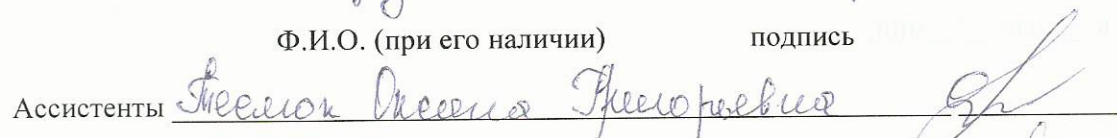 Ф.И.О. (при его наличии) подпись
Ассистенты Оксана Григорьевна